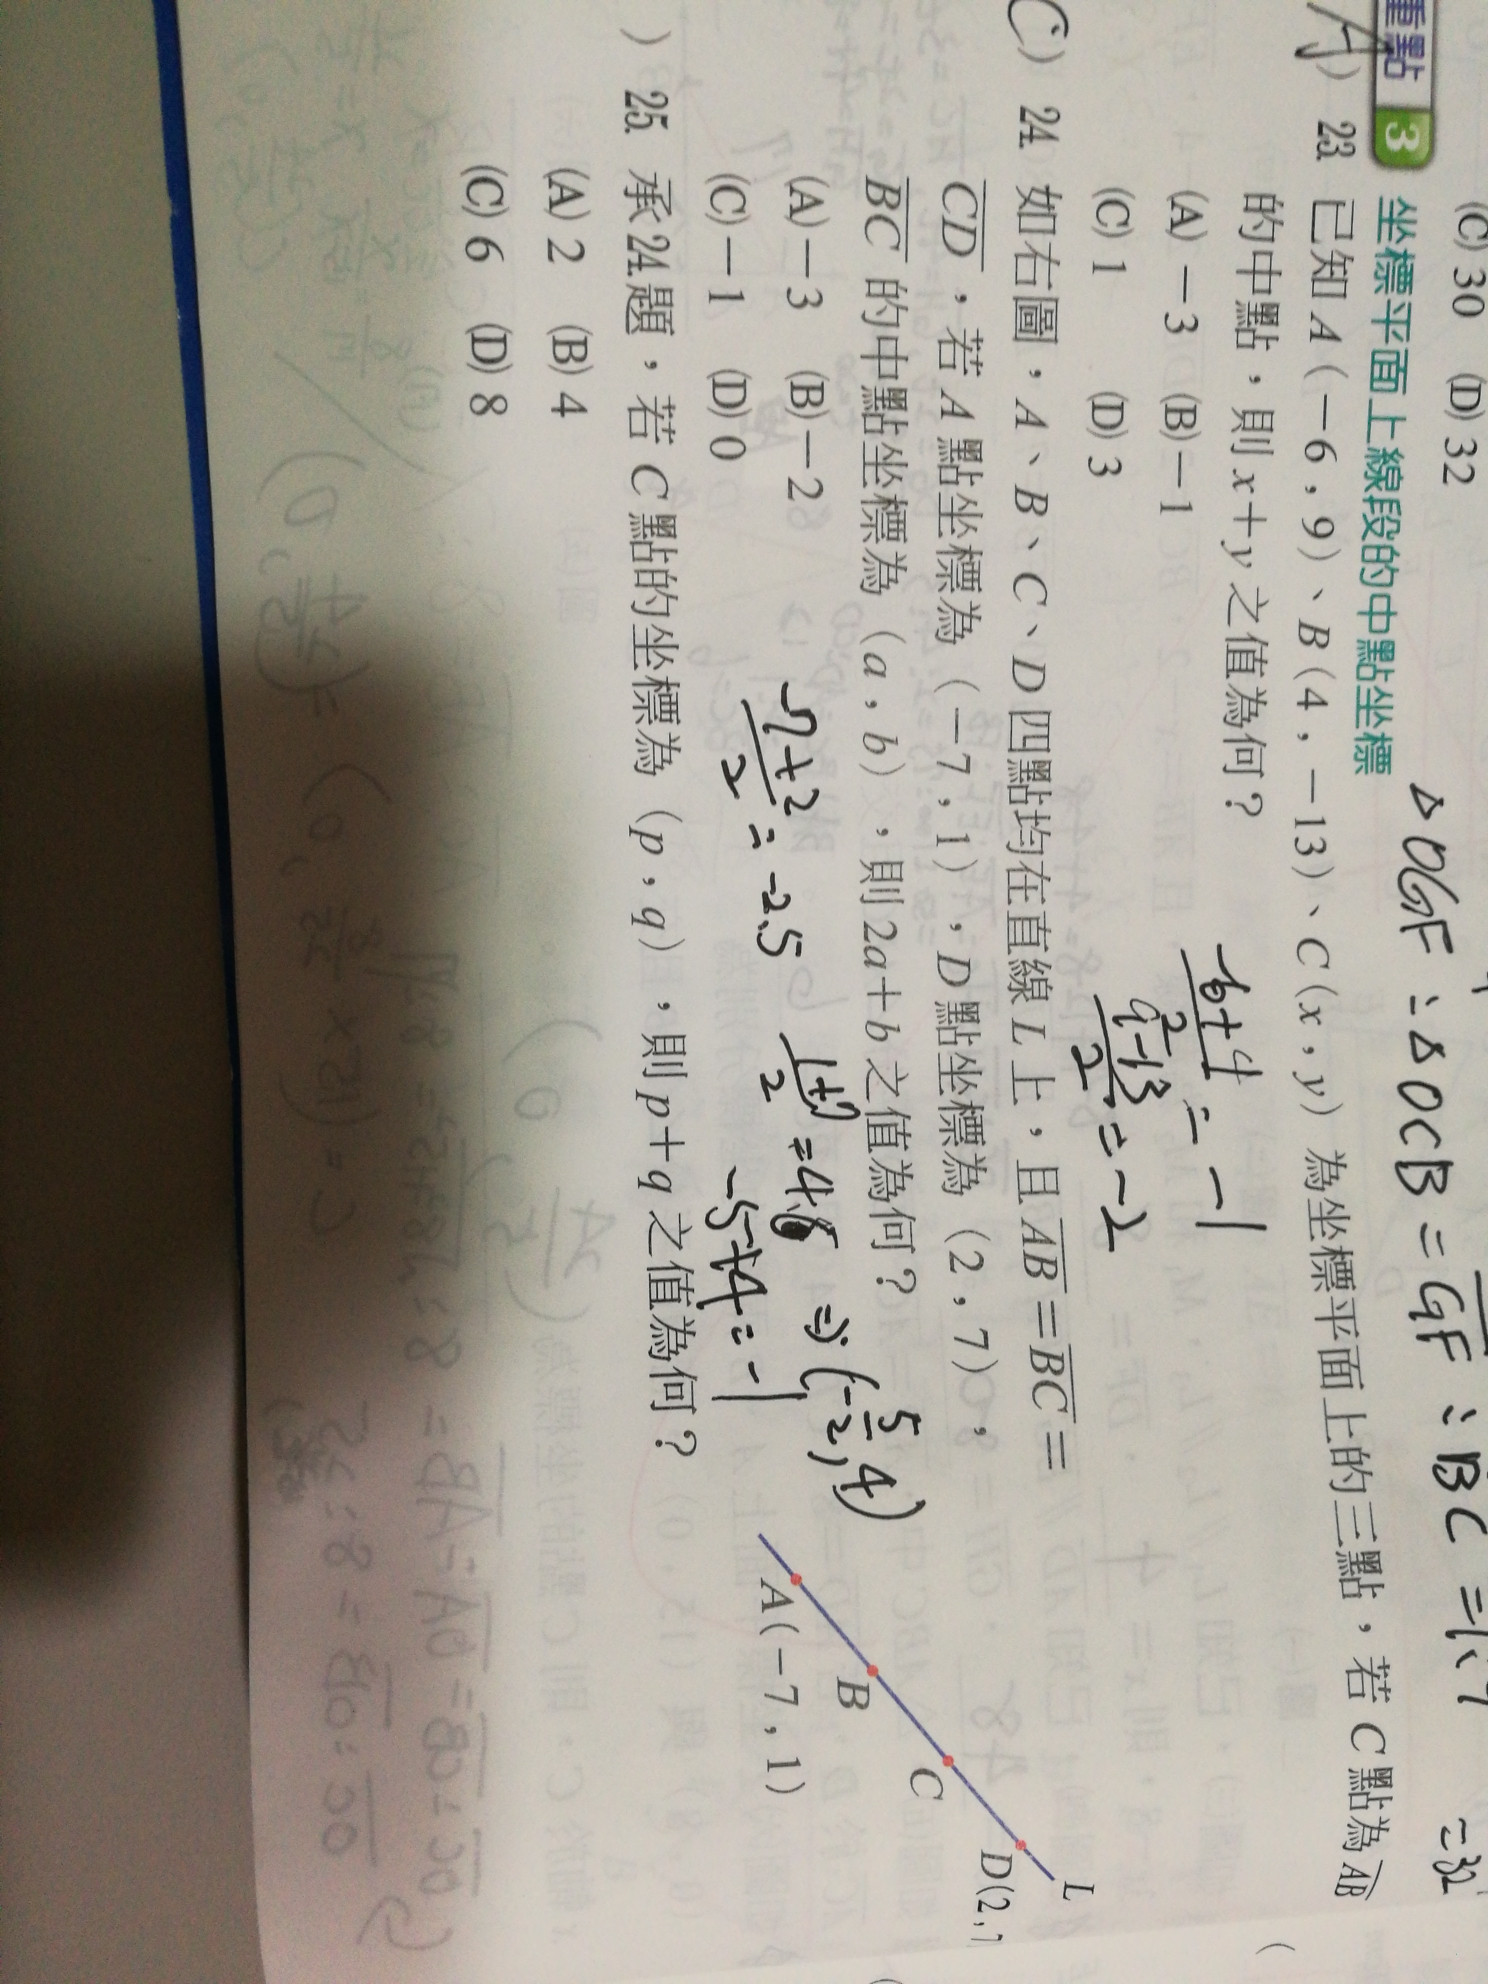 (C) 30　(D) 32
△OGF：△OCB＝GF：BC＝1：7
＝32
重點 3 坐標平面上線段的中點坐標
(A) 23. 已知 A（－6，9）、B（4，－13）、C（x，y）為坐標平面上的三點，若 C 點為 AB
的中點，則 x＋y 之值為何？
(A)－3　(B)－1
(C) 1　(D) 3
-6+4/2 = -1
9-13/2 = -2
(C) 24. 如右圖，A、B、C、D 四點均在直線 L 上，且 AB＝BC＝
CD，若 A 點坐標為（－7，1），D 點坐標為（2，7），
BC 的中點坐標為（a，b），則 2a＋b 之值為何？
(A)－3　(B)－2
(C)－1　(D) 0
-7+2/2 = -2.5
1+7/2 = 4
⇒ (-5/2, 4)
-5+4 = -1
L
D(2,7
C
B
A(－7，1)
( ) 25. 承 24.題，若 C 點的坐標為（p，q），則 p＋q 之值為何？
(A) 2　(B) 4
(C) 6　(D) 8